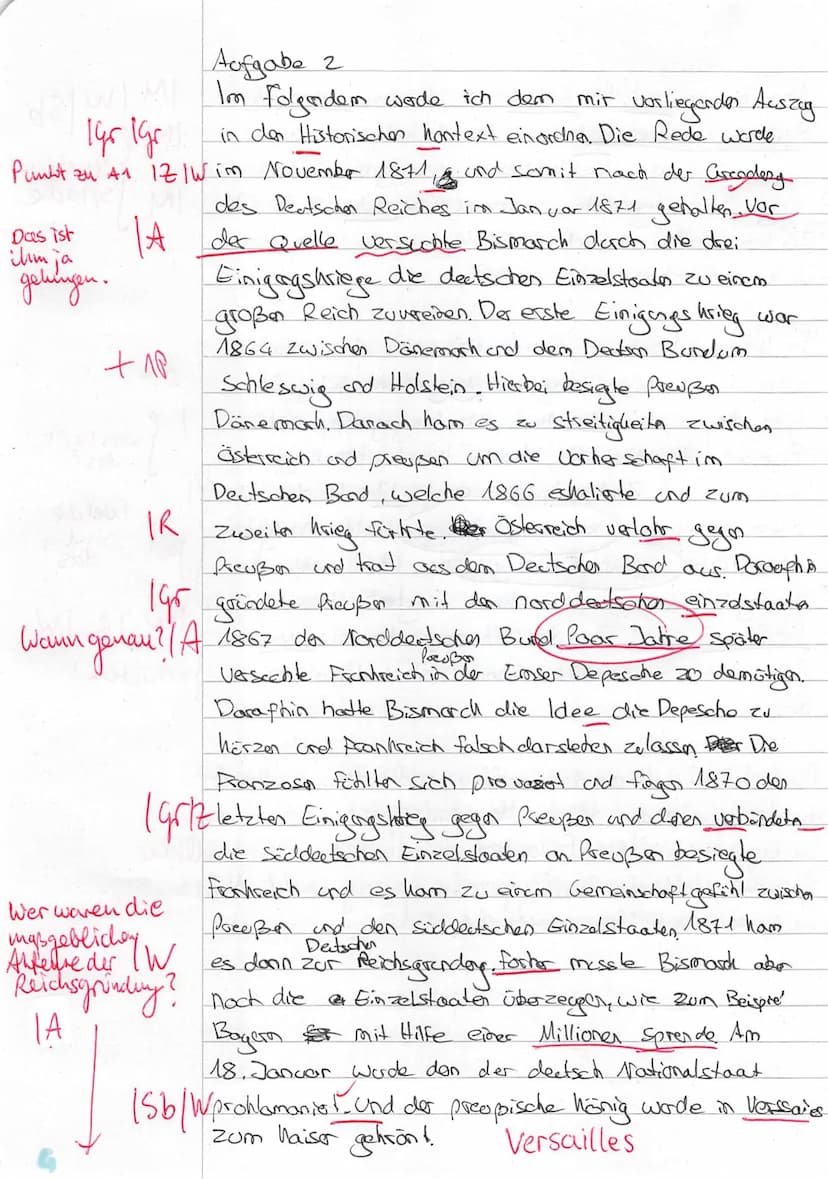 Aufgabe 2
Im folgendem werde ich dem mir vorliegenden Auszug
|gr |gr in den Historischen kontext einordnen. Die Rede wurde
Punkt zu A1 |Z|W im November 1871, und somit nach der Gründung
des Deutschen Reiches im Januar 1871 gehalten. Vor
Das ist ihm ja gelungen. |A der Quelle versuchte Bismarck durch die drei
Einigungskriege die deutschen Einzelstaaten zu einem
großen Reich zu vereinen. Der erste Einigungskrieg war
+ 1P 1864 zwischen Dänemark und dem Deutschen Bund um
Schleswig und Holstein. Hierbei besiegte Preußen
Dänemark. Danach kam es zu streitigkeiten zwischen
Österreich und preußen um die Vorherschaft im
Deutschen Bund, welche 1866 eskalierte und zum
|R zweiten krieg führte. Österreich verlohr gegen
Preußen und trat aus dem Deutschen Bund aus. Daraufhin
|gr gründete Preußen mit den norddeutschen einzelstaaten
Wann genau? |A 1867 den Norddeutschen Bund. Paar Jahre später
versuchte Frankreich Preußen in der Emser Depesche zu demütigen.
Daraufhin hatte Bismarck die Idee die Depesche zu
kürzen und Frankreich falsch darstellen zu lassen. Die
Franzosen fühlten sich und fingen 1870 den
|gr|Z letzten Einigungskrieg gegen Preußen und deren verbündeten
die süddeutschen Einzelstaaten an. Preußen besiegte
Frankreich und es kam zu einem Gemeinschaftgefühl zwischen
Preußen und den süddeutschen Einzelstaaten. 1871 kam
Wer waren die maßgeblichen Akteure der Reichsgründung? |W es dann zur Deutschen Reichsgründung. musste Bismarck aber
noch die Einzelstaaten überzeugen, wie zum Beispiel
|A Bayern mit Hilfe einer Millionen Spende. Am
18. Januar wurde dann der deutsch Nationalstaat
|Sb|W proklamaniert. Und der preußische König wurde in
zum Kaiser gekrönt. Versailles